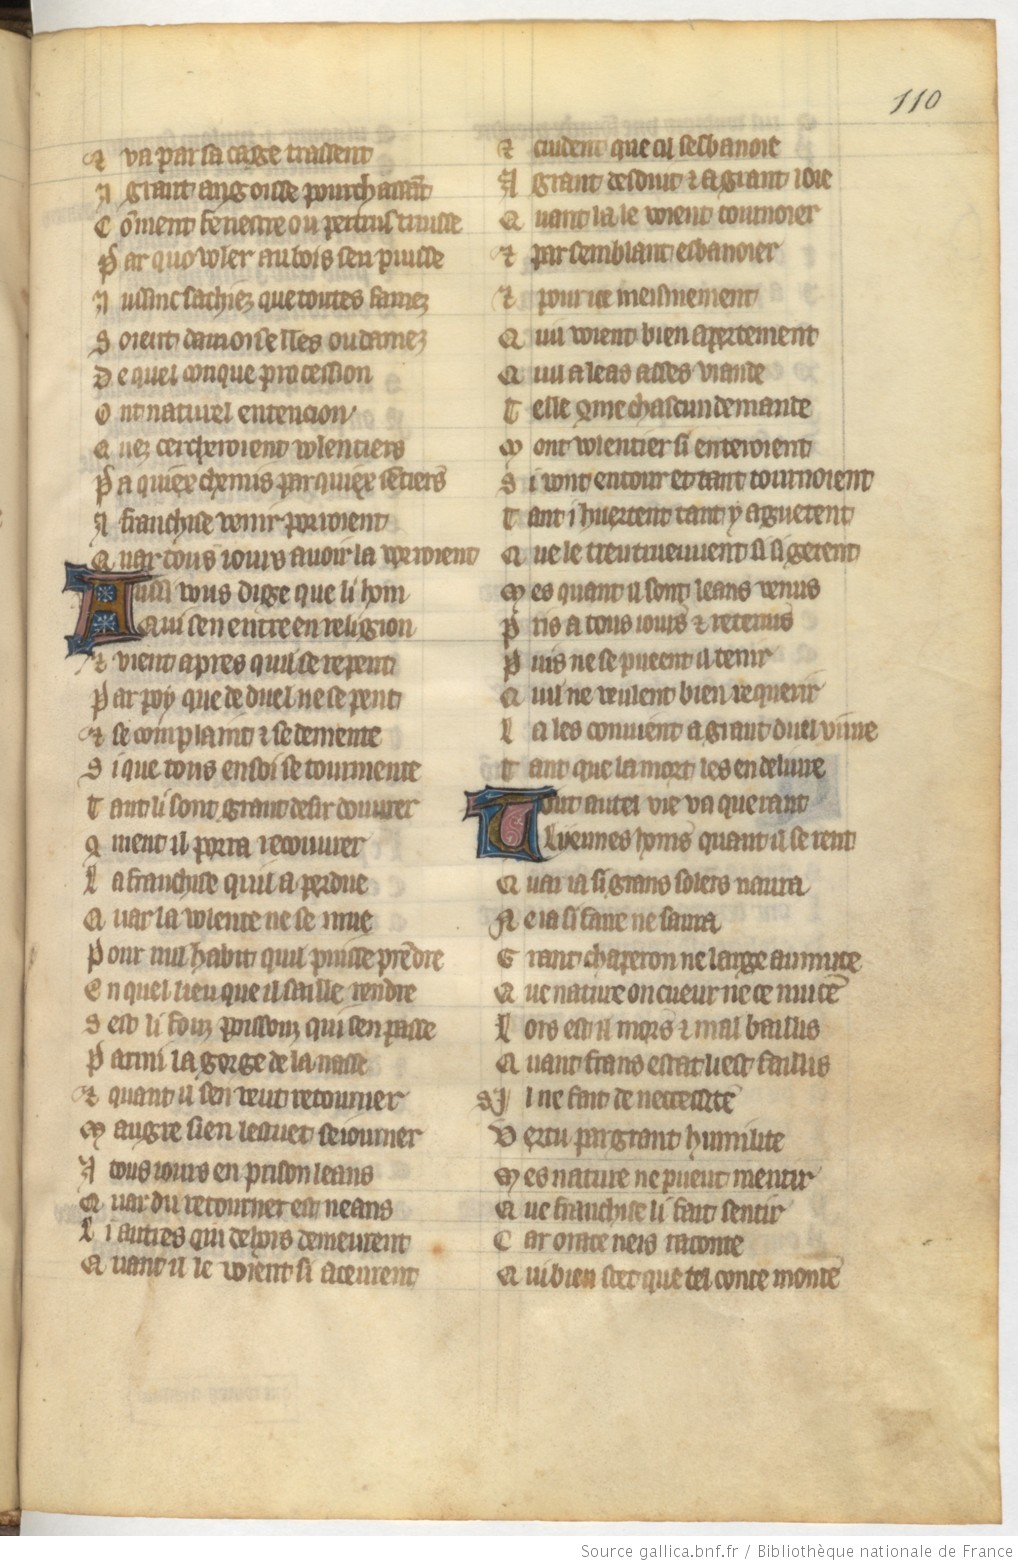 110
Et va par sa cage trassent
A grant angoisse pourchassāt
Cōment fenestre ou pertruis truisse
Par quo voler au bois sen puisse
Aussinc sachiez que toutes famez
Soient damoiselles ou damez
De quel conque procession
Ont naturel entencion
Quez cercheroient volentiers
Pa quiex chemis par quiex sētiers
A franchise venir porroient
Quar tous iours avoir la vorroient
Aussi vous dige que li hom
Qui sen entre en religion
Et vient apres quil se repent
Par poy que de duel ne se pent
Et se complaint ⁊ se demente
Si que tous en soi se tourmente
Tant li sont grant desir douurer
Qment il porra recouurer
La franchise quil a perdue
Quar la volente ne se mue
Pour nul habit quil puisse prēdre
En quel lieu que il saille rendre
Sest li fouz poissonz qui sen passe
Parmi la gorge de la nasse
Et quant il sen veut retourner
Maugre sien leauet seiourner
A tous iours en prison leans
Quar du retourner est neans
Li autres qui dehors demeurent
Quant il le voient si aceurent
Et cuident que cil sesbanoie
A grant desduit ⁊ a grant ioie
Quant la le voient tournoier
Et par semblant esbanoier
Et pour ice meismement
Qui voient bien apertement
Qui a leas asses viande
Telle qme chascun demande
Mont volentier si enteroient
Si vont entour et tant tournoient
Tant i huertent tant y aguetent
Que le treu treuuent si si getent
Mes quant il sont leans venus
Pris a tous iours ⁊ retenus
Puis ne se pueent il tenir
Quil ne veulent bien requerir
La les conuient a grant duel viure
Tant que la mort les en deliure
Tout autel vie va querant
Li iennes homs quant il se rent
Quar ia si grans solers naura
Ne ia si faire ne saura
Grant chaperon ne large aumuce
Que nature on cueur ne ce mucē
Lors est il mors ⁊ mal baillis
Quant frans estat li est faillis
Sil ne fait de necessite
Vertu par grant humilite
Mes nature ne pueut mentir
Que franchise li fait sentir
Car orace neis raconte
Qui bien scet que tel conte monte
Source gallica.bnf.fr / Bibliothèque nationale de France